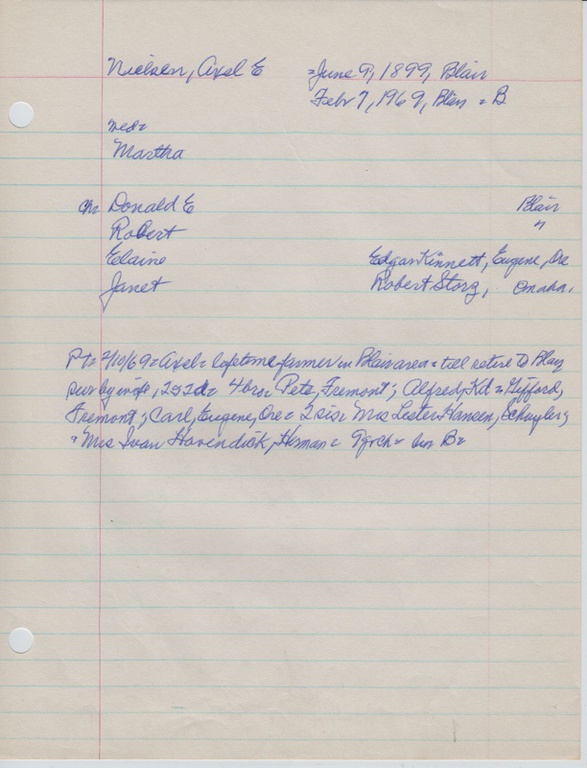 Nielsen, Axel E = June 9, 1899, Blair
Febr 7, 1969, Blair = B
med=
Martha
Ch= Donald E Blair
Robert "
Elaine Edgar Kinnett, Eugene, Ore
Janet Robert Storz, Omaha,
PT= 2/10/69 = Axel = lifetime farmer in Blair area = till retire to Blair
sur by wife, 2s 2d = 4 bro= Pete, Fremont; Alfred, Kd = Gifford,
Fremont; Carl, Eugene, Ore = 2 sis= Mrs Lester Hansen, Schuyler;
" Mrs Ivan Havendick, Herman = 9grch = bur B=